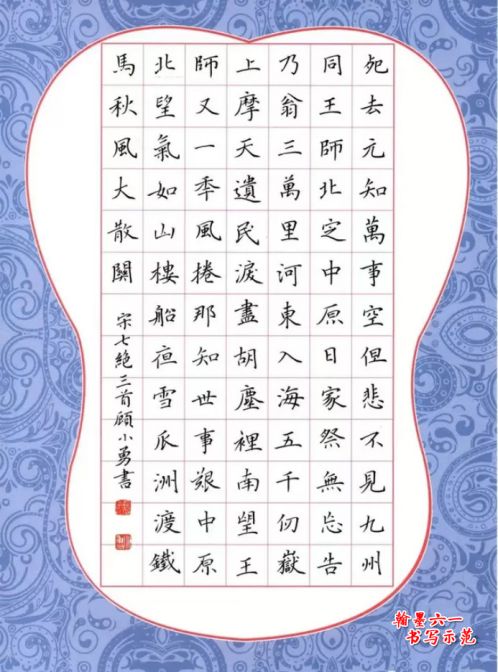 死去元知萬事空但悲不見九州
同王師北定中原日家祭無忘告
乃翁三萬里河東入海五千仞嶽
上摩天遺民淚盡胡塵裡南望王
師又一秊風捲那知世事艱中原
北望氣如山樓船夜雪瓜洲渡鐵
馬秋風大散關
宋七絕三首顧小勇書
翰墨六一
书写示范